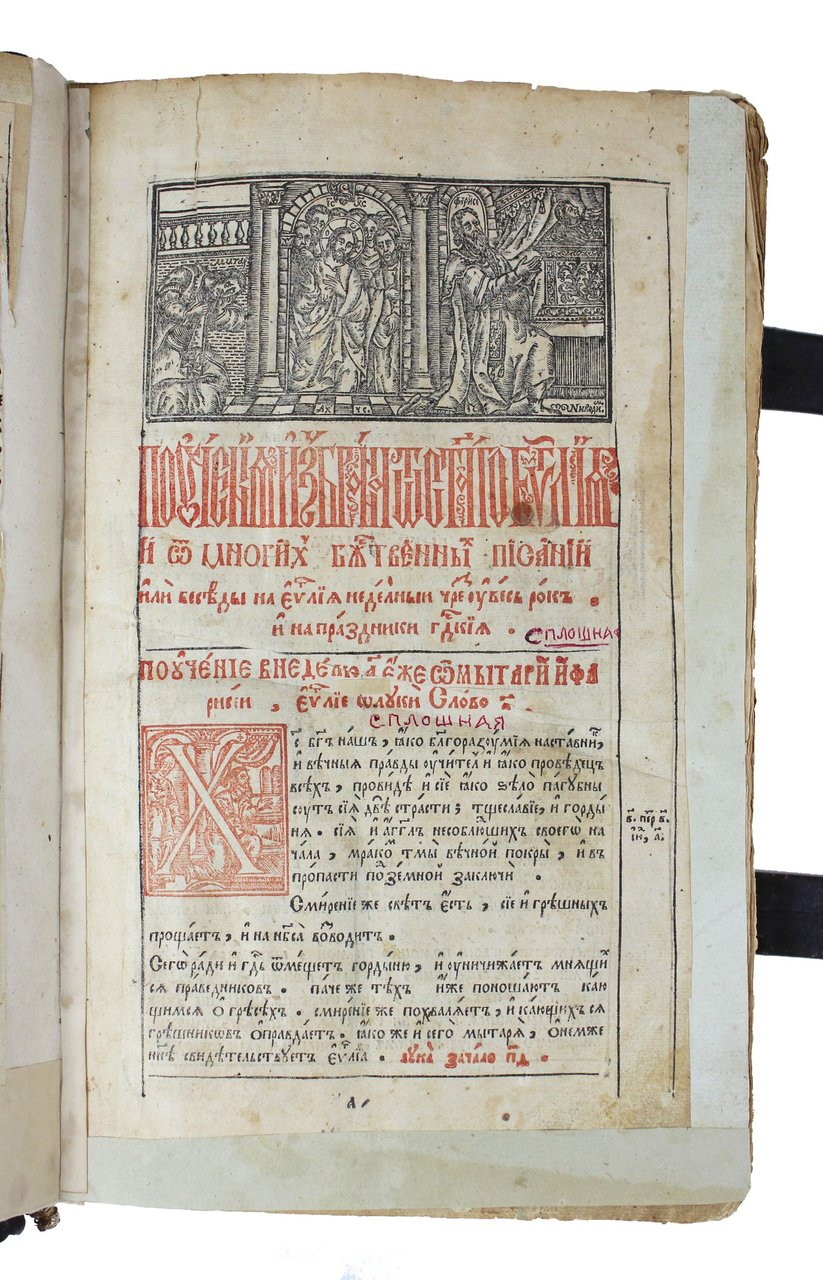 МИТАР
ІС ХС
ФАРИС
АХ ЧС
ПОꙊЧЕ́НІѦ И҆ЗБРА́НЪ Ѿ СТ҃А́ГО ЕѴⷢ҇ЛІѦ
И҆ ѿ многи́хъ бж҃тве́нныⷯ писа́ній
и҆лѝ бесѣ́ды на є҆ѵⷢ҇лїѧ неде́лныи чре́ⷥ ѹ҆ве́сь ро́къ .
и҆ на пра́здники гдⷭ҇кїѧ .
СПЛОШНАЯ
поꙋче́нїе в неде́лю а҃ є҆́же ѿ мытарѝ и҆ фа
рисеи , є҆ѵⷢ҇лїе ѿ лꙋкѝ Сло́во а҃ .
СПЛОШНАЯ
Хс бг҃ъ на́шъ , ꙗ҆́ко бл҃горазꙋ́мїѧ наста́вниⷦ ,
и҆ вѣ́чныѧ пра́вды ѹ҆чи́тель и҆ ꙗ҆́ко провѣ́децъ
всѣ́хъ , прови́дѣ и҆ сїѐ ꙗ҆́ко ѕѣло̀ па́гꙋбны
сꙋть сїѧ̑ двѣ̀ стра́сти ; тщесла́вїе , и҆ горды́
нѧ . сїѧ̑ и҆ а҆́гг҃лъ несоблю́шихъ своегѡ̀ на
ча́ла , мра́коⷨ тмы̀ вѣ́чной покры̀ , и҆ въ
про́пасти поⷣзе́мной заключѝ .
Смире́нїе же свѣ́тъ є҆́сть , сїѐ и҆ грѣ́шныхъ
проща́етъ , и҆ на нб҃са̀ во́зводитъ .
Сегѡ̀ ра́ди и҆ гдⷭ҇ь ѿме́щетъ горды́ню , и҆ ѹ҆ничижа́етъ мнѧ́щиⷯ
сѧ пра́ведниковъ . па́че же тѣ́хъ и҆̀же поноша́ютъ ка́ю
щимсѧ ѡ҆ грѣсѣ́хъ . смире́нїе же похвалѧ́етъ , и҆ ка́ющихъ сѧ
грѣ́шникѡвъ ѡ҆правда́етъ . ꙗ҆́коже и҆ сего̀ мытарѧ̀ , ѡ҆ не́мже
нн҃ѣ свидѣ́тельствꙋетъ є҆ѵⷢ҇лїа . лꙋка̀ зача́ло п҃ѳ .
а҃